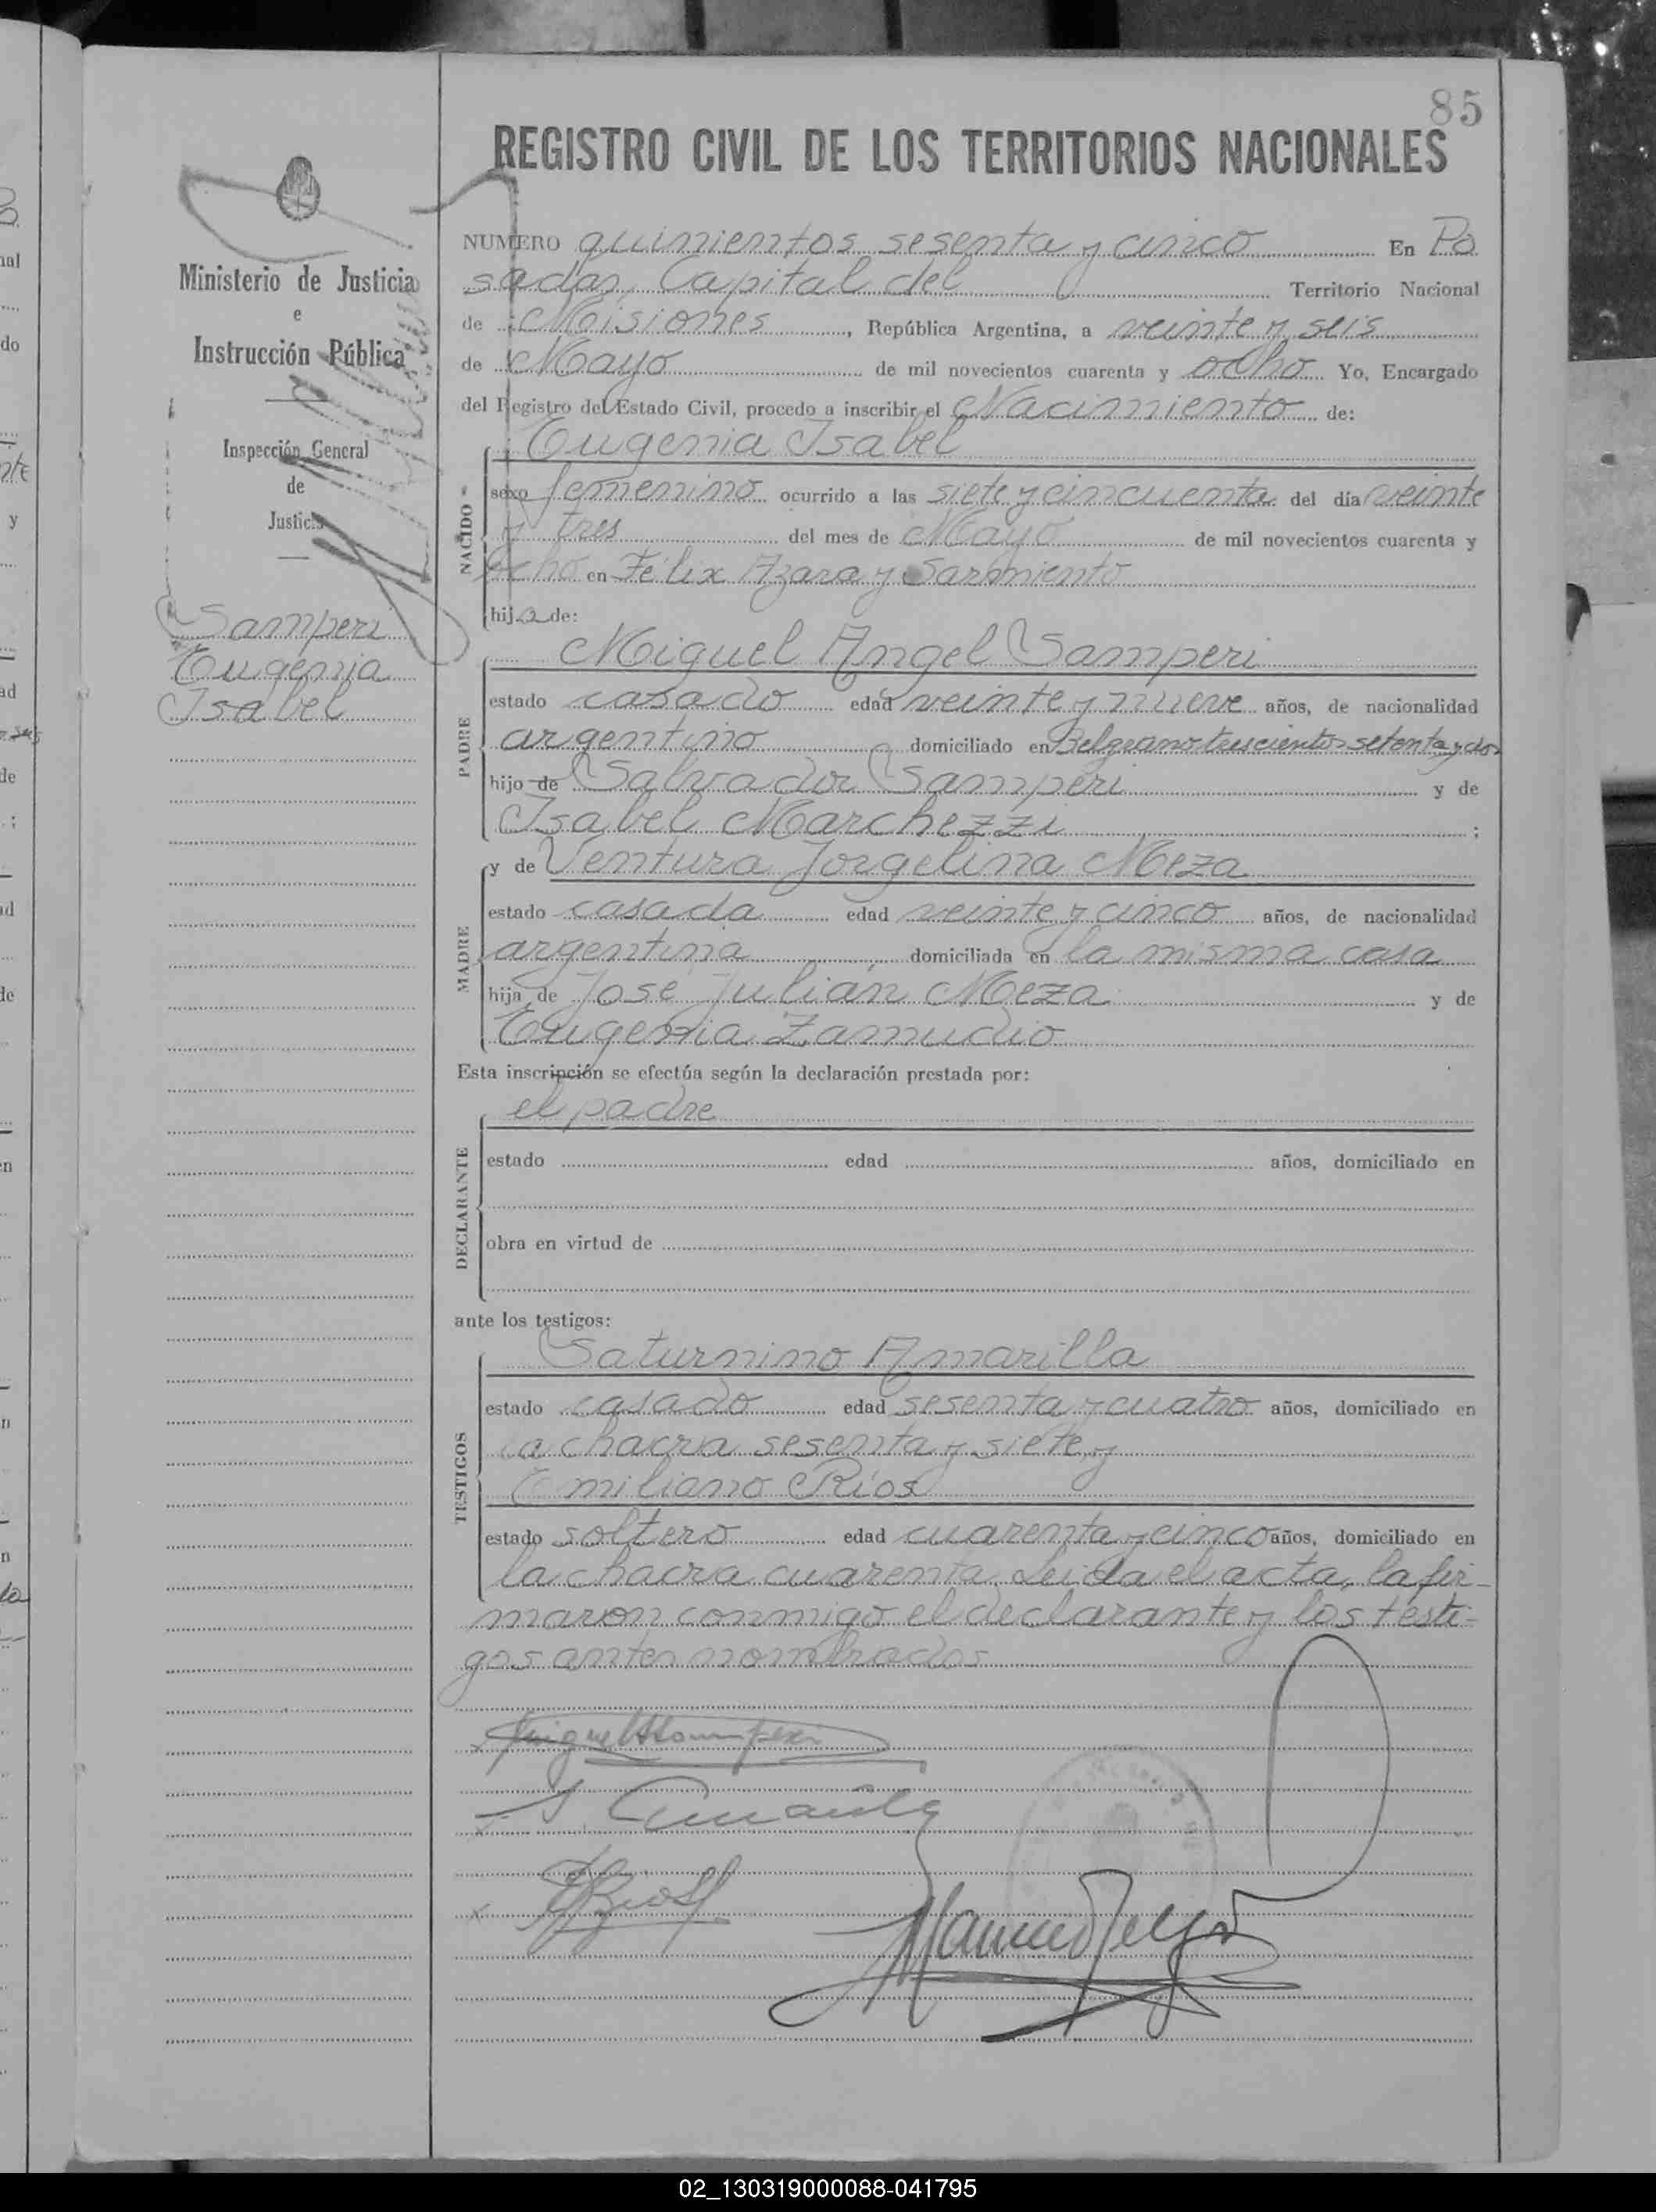 85
REGISTRO CIVIL DE LOS TERRITORIOS NACIONALES
Ministerio de Justicia
e
Instrucción Pública
Inspección General
de
Justicia
Samperi
Eugenia
Isabel
NUMERO quinientos sesenta y cinco En Po
sadas, Capital del Territorio Nacional
de Misiones, República Argentina, a veinte y seis
de Mayo de mil novecientos cuarenta y ocho Yo, Encargado
del Registro del Estado Civil, procedo a inscribir el Nacimiento de:
NACIDO
Eugenia Isabel
sexo femenino ocurrido a las siete y cincuenta del día veinte
y tres del mes de Mayo de mil novecientos cuarenta y
ocho en Félix Azara y Sarmiento
hija de:
PADRE
Miguel Angel Samperi
estado casado edad veinte y nueve años, de nacionalidad
argentino domiciliado en Belgrano trescientos setenta y dos
hijo de Salvador Samperi y de
Isabel Marchezzi ;
MADRE
y de Ventura Jorgelina Meza
estado casada edad veinte y cinco años, de nacionalidad
argentina, domiciliada en la misma casa
hija de José Julián Meza y de
Eugenia Zamudio
Esta inscripción se efectúa según la declaración prestada por:
DECLARANTE
el padre
estado edad años, domiciliado en
obra en virtud de
ante los testigos:
TESTIGOS
Saturnino Amarilla
estado casado edad sesenta y cuatro años, domiciliado en
la chacra sesenta y siete y
Emiliano Ríos
estado soltero edad cuarenta y cinco años, domiciliado en
la chacra cuarenta. Leida el acta, la fir-
maron conmigo el declarante y los testi-
gos antes nombrados
02_130319000088-041795